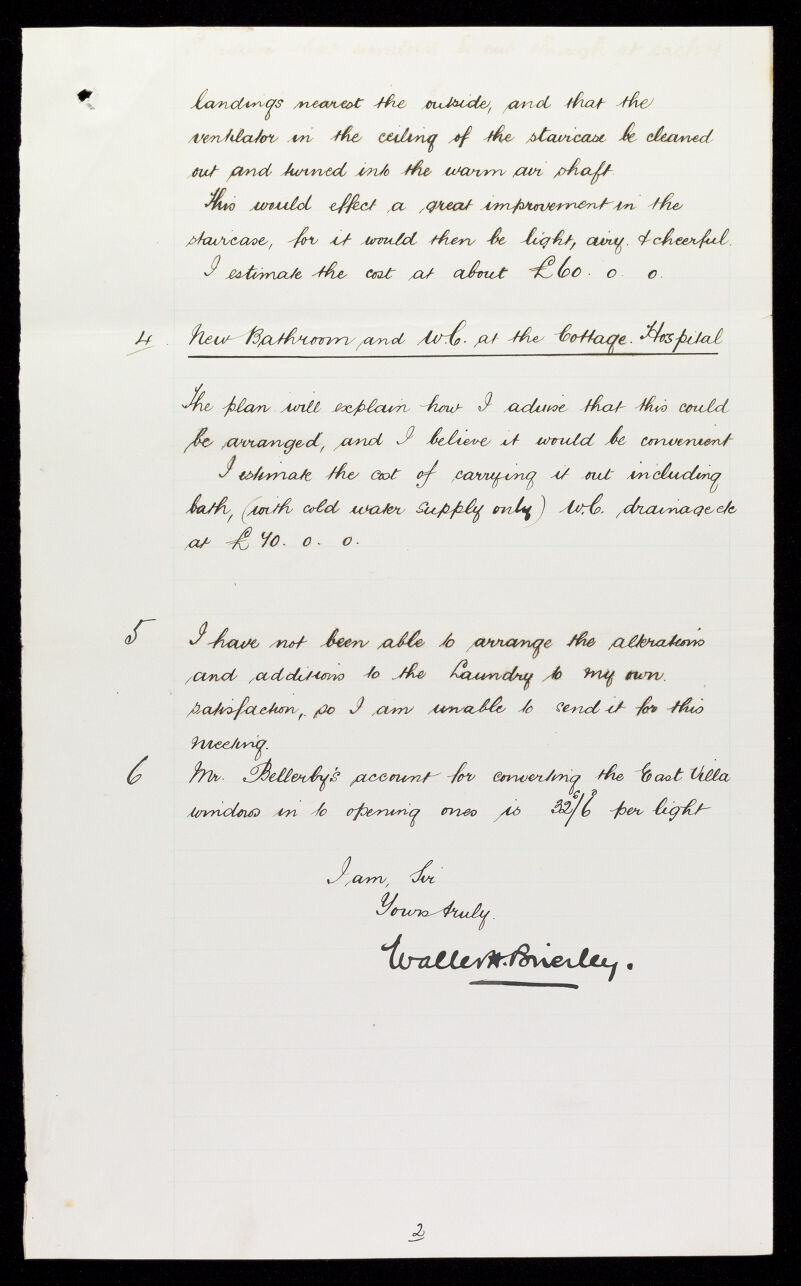 landings nearest the outside, and that the
ventilator in the ceiling of the staircase be cleaned
out and turned into the warm air shaft
This would effect a great improvement in the
staircase, for it would then be light, airy. & cheerful.
I estimate the cost at about £60. 0. 0.
4 New Bathroom and W.C. at the Cottage. Hospital
The plan will explain how I advise that this could
be arranged, and I believe it would be convenient
I estimate the cost of carrying it out including
bath, (with cold water supply only) W.C. drainage etc
at £70. 0. 0.
5 I have not been able to arrange the alterations
and additions to the Laundry to my own.
satisfaction, so I am unable to send it for this
meeting.
6 Mr. Bellerby's account for converting the East Villa
windows in to opening ones is 32/6 per light
I am, Sir
Yours truly.
Walter H. Brierley.
2